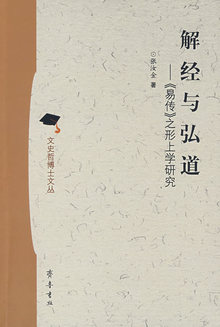 解经与弘道
——《易传》之形上学研究
⊙张汝金 著
文史哲博士文丛
齐鲁书社